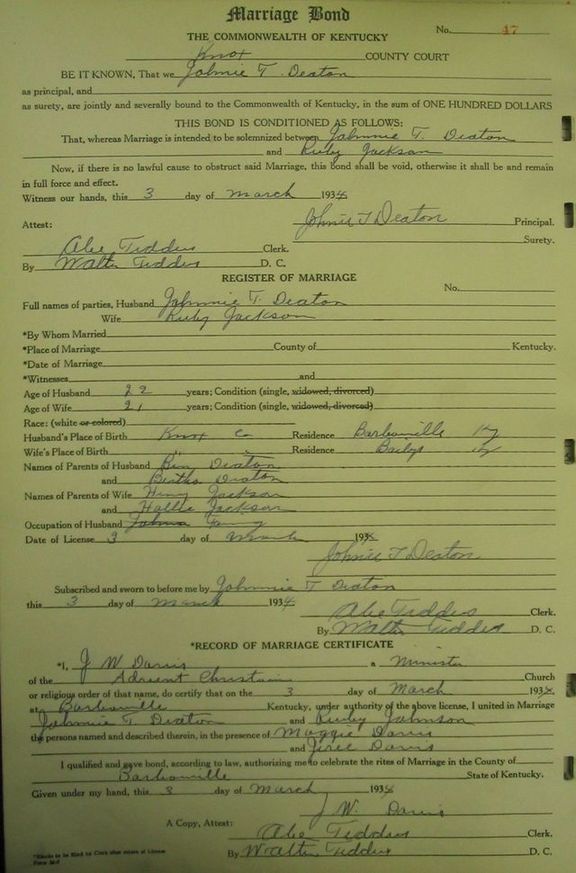 Marriage Bond
THE COMMONWEALTH OF KENTUCKY
No. 47
Knox COUNTY COURT
BE IT KNOWN, That we Johnie T. Deaton
as principal, and
as surety, are jointly and severally bound to the Commonwealth of Kentucky, in the sum of ONE HUNDRED DOLLARS
THIS BOND IS CONDITIONED AS FOLLOWS:
That, whereas Marriage is intended to be solemnized between Johnnie T. Deaton
and Ruby Jackson
Now, if there is no lawful cause to obstruct said Marriage, this bond shall be void, otherwise it shall be and remain
in full force and effect.
Witness our hands, this 3 day of March 1934
Johnie T Deaton Principal.
Attest: Surety.
Abe Tedders Clerk.
By Walter Tedders D. C.
REGISTER OF MARRIAGE
No.
Full names of parties, Husband Johnnie T. Deaton
Wife Ruby Jackson
*By Whom Married
*Place of Marriage County of Kentucky.
*Date of Marriage
*Witnesses and
Age of Husband 22 years; Condition (single, widowed, divorced)
Age of Wife 21 years; Condition (single, widowed, divorced)
Race: (white or colored)
Husband's Place of Birth Knox Co Residence Barbourville Ky
Wife's Place of Birth " " Residence Baileys Ky
Names of Parents of Husband Ben Deaton
and Bertha Deaton
Names of Parents of Wife Henry Jackson
and Hallie Jackson
Occupation of Husband
Date of License 3 day of March 193
Johnie T Deaton
Subscribed and sworn to before me by Johnnie T Deaton
this 3 day of March 1934
Abe Tedders Clerk.
By Walter Tedders D. C.
*RECORD OF MARRIAGE CERTIFICATE
*I, J W Davis a Minister
of the Advent Christain Church
or religious order of that name, do certify that on the 3 day of March 1934
at Barbourville Kentucky, under authority of the above license, I united in Marriage
Johnnie T. Deaton and Ruby Johnson
the persons named and described therein, in the presence of Maggie Davis
and Davis
I qualified and gave bond, according to law, authorizing me to celebrate the rites of Marriage in the County of
Barbourville State of Kentucky.
Given under my hand, this 3 day of March 1934
J. W. Davis
A Copy, Attest: Abe Tedders Clerk.
By Walter Tedders D. C.